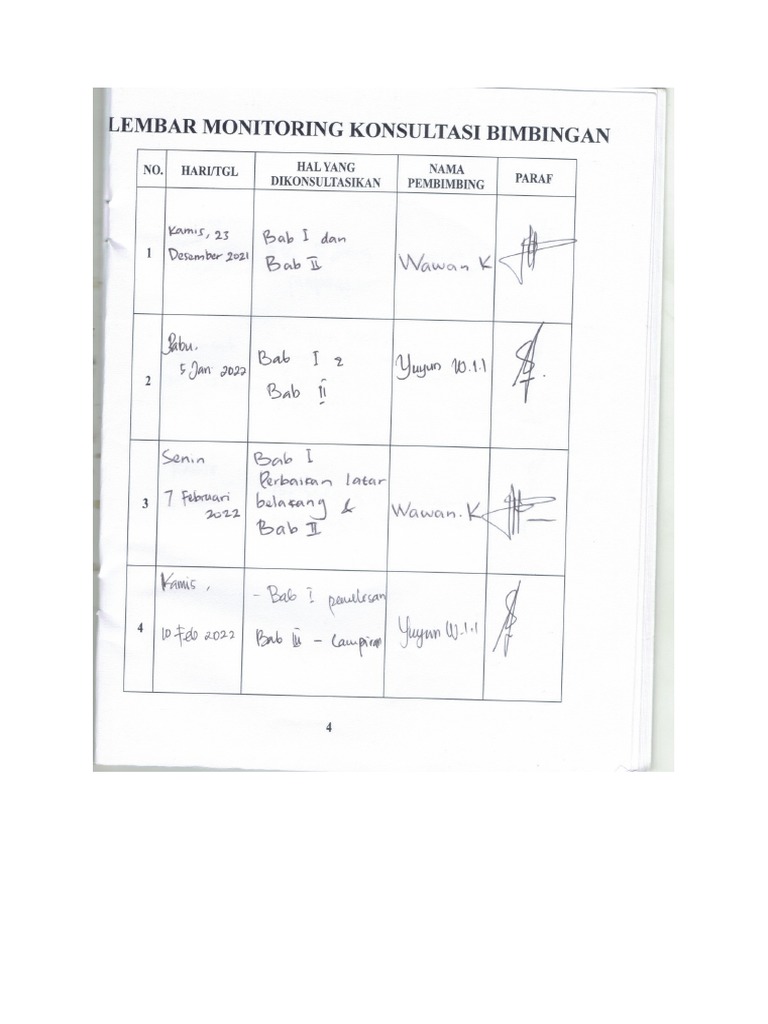 LEMBAR MONITORING KONSULTASI BIMBINGAN
NO. HARI/TGL HAL YANG DIKONSULTASIKAN NAMA PEMBIMBING PARAF
1
Kamis, 23
Desember 2021
Bab I dan
Bab II
Wawan K
2
Rabu,
5 Jan 2022
Bab I &
Bab II
Yuyun W.I.I
3
Senin
7 Februari
2022
Bab I
Perbaikan latar
belakang &
Bab II
Wawan.K
4
Kamis,
10 Feb 2022
- Bab I penulisan
Bab III - Lampiran
Yuyun W.I.I
4